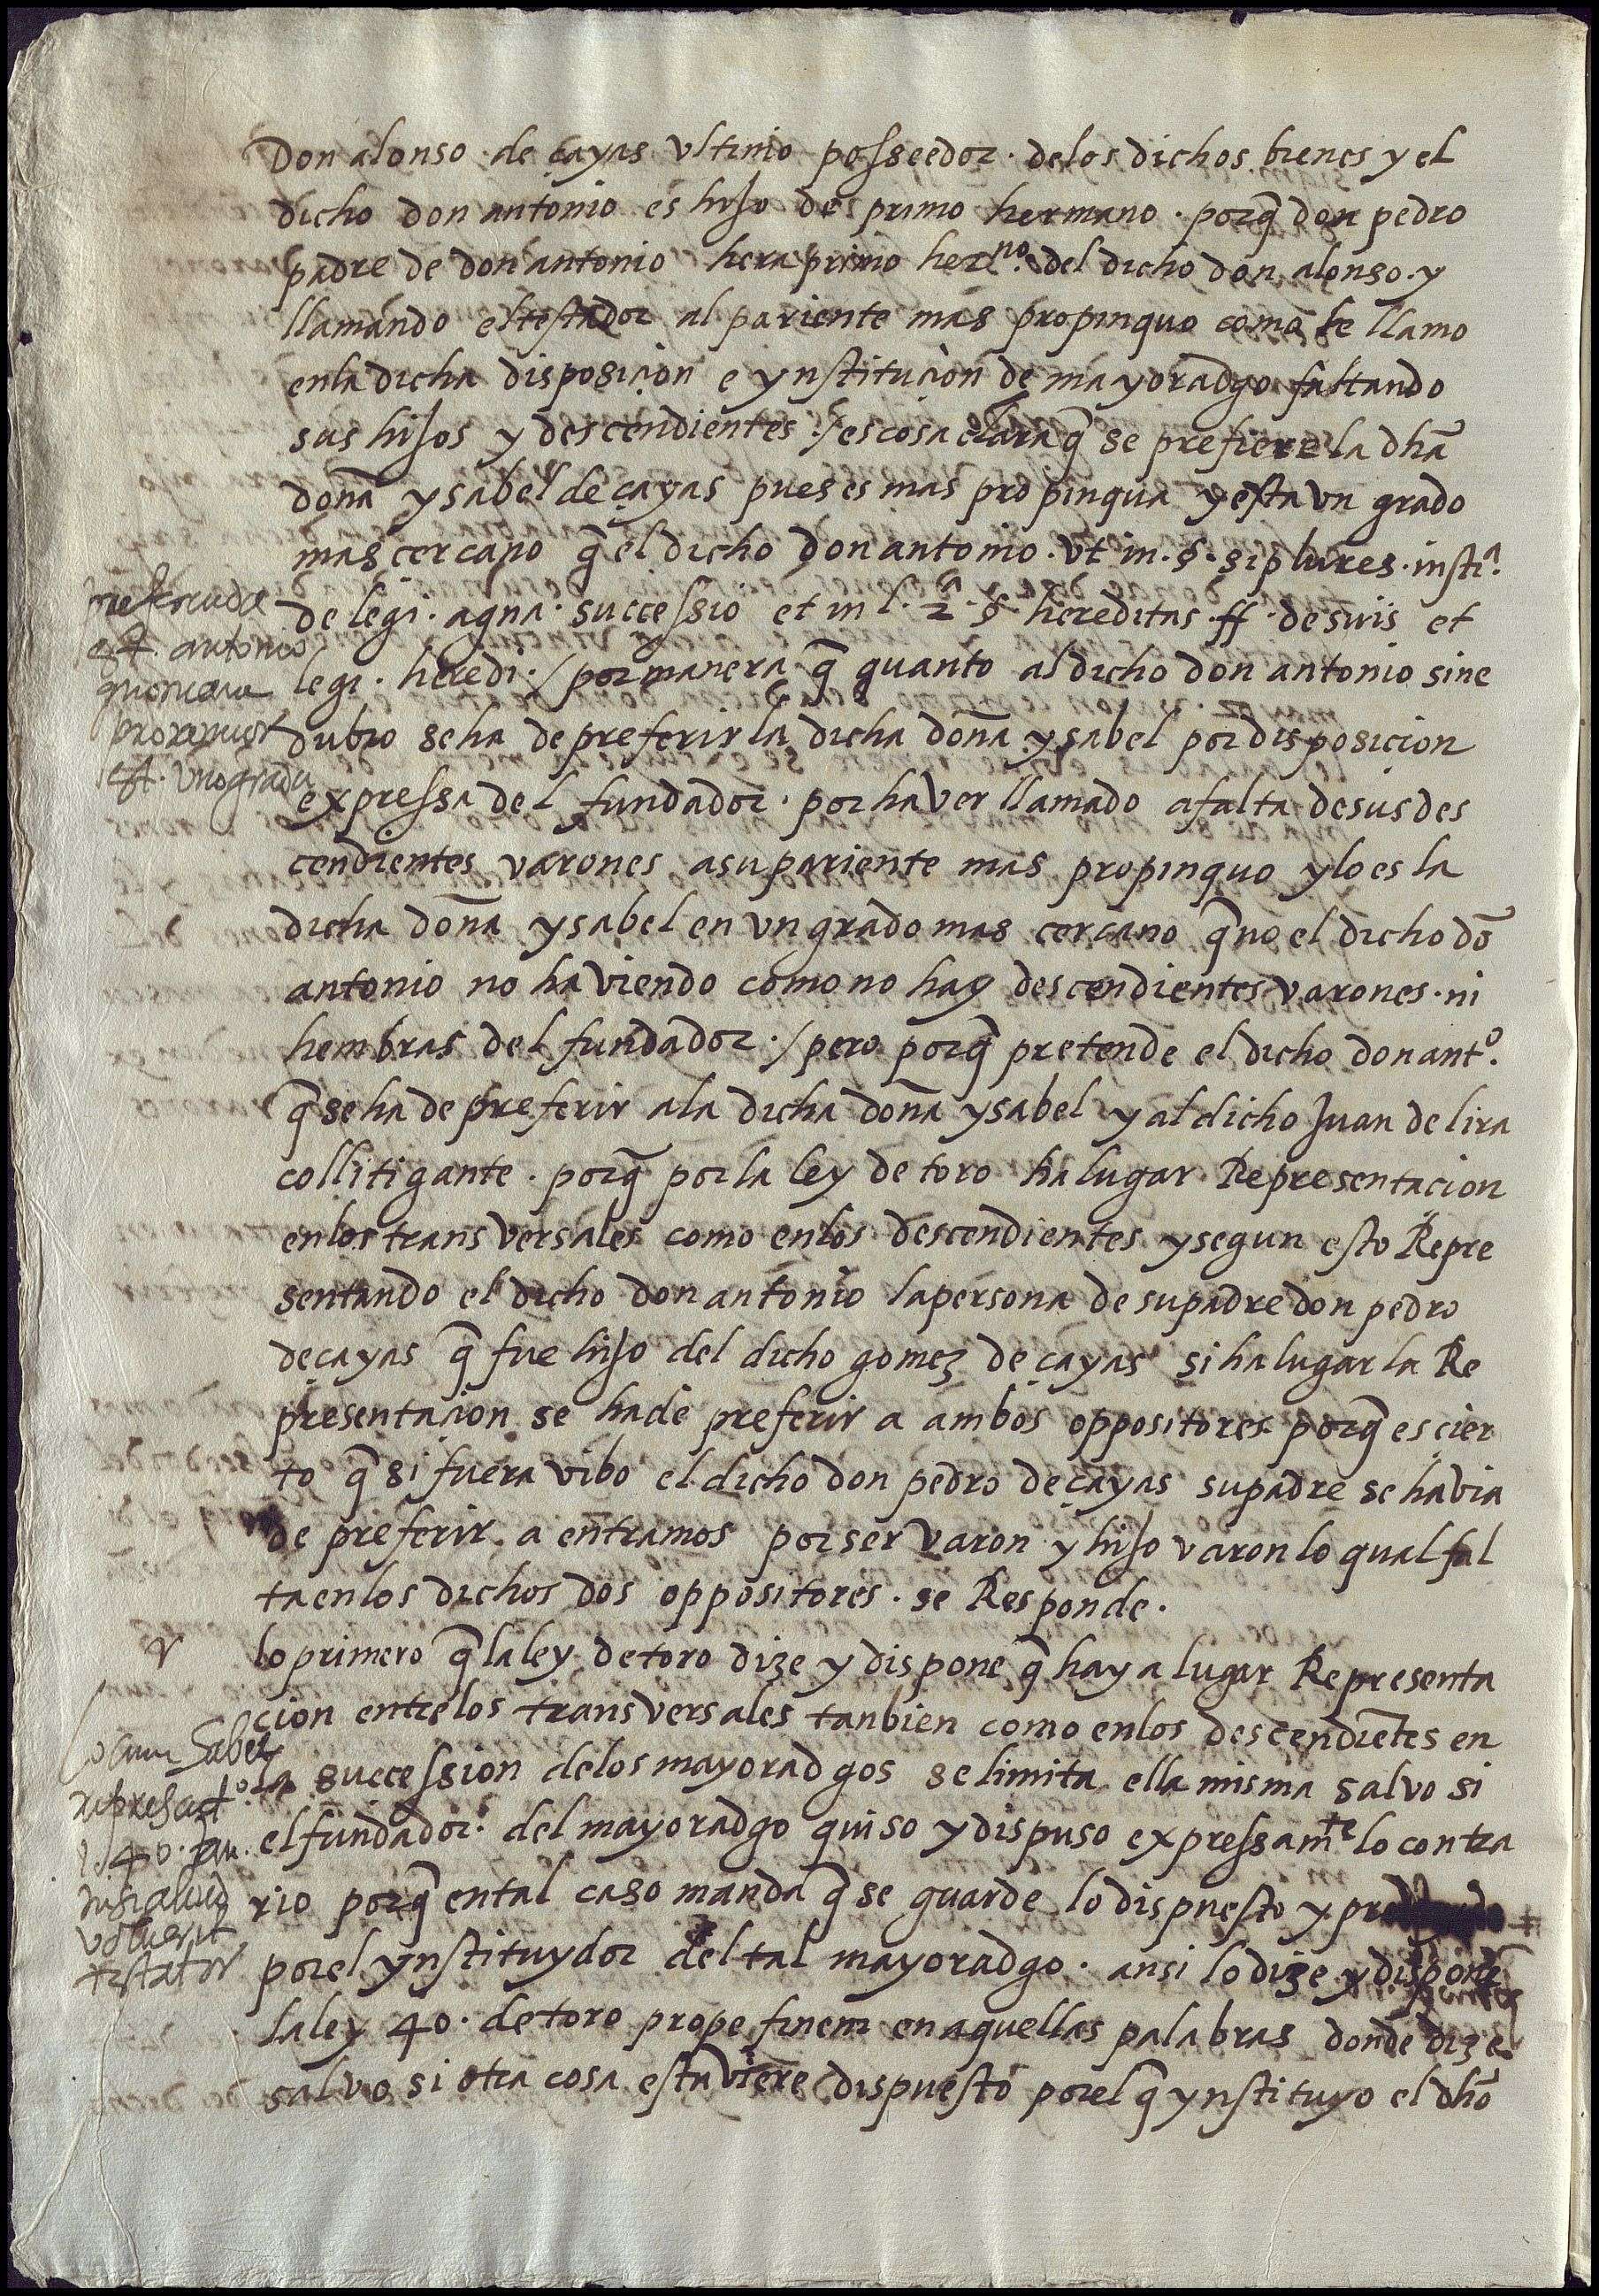 Don alonso de çayas vltimo posseedor. delos dichos bienes y el
dicho don antonio es hijo de primo hermano. porq̃ don pedro
padre de don antonio hera primo herno. del dicho don alonso. y
llamando el testador al pariente mas propinquo como le llamo
enla dicha disposiçion e ynstituçion de mayoradgo faltando
sus hijos y descendientes./ es cosa clara q̃ se prefiere la dhã
doña ysabel de çayas pues es mas propinqua y esta vn grado
mas cercano q̃ el dicho don antonio. vt in. §. si plures. insti.
de legi. agna. successiõ et in l. 2ª. § hereditas. ff. de suis et
legi. heredi./ por manera q̃ quanto al dicho don antonio sine
dubio se ha de preferir la dicha doña ysabel por disposicion
expressa del fundador. por haver llamado a falta de sus des
cendientes varones a su pariente mas propinquo y lo es la
dicha doña ysabel en vn grado mas cercano q̃ no el dicho dõ
antonio no haviendo como no hay descendientes varones. ni
hembras del fundador./ pero porq̃ pretende el dicho don anto.
q̃ se ha de preferir ala dicha doña ysabel y al dicho Juan de lira
collitigante. porq̃ por la ley de toro ha lugar Representacion
enlos transversales como enlos descendientes y segun esto Repre
sentando el dicho don antonio la persona de su padre don pedro
de çayas q̃ fue hijo del dicho gomez de çayas si ha lugar la Re
presentaçion se ha de preferir a ambos oppositores porq̃ es cier
to q̃ si fuera vibo el dicho don pedro de çayas su padre se havia
de preferir a entramos por ser varon y hijo varon lo qual fal
ta enlos dichos dos oppositores. se Responde.
lo primero q̃ la ley de toro dize y dispone q̃ haya lugar Representa
cion entrelos transversales tanbien como enlos descendiẽtes en
la succession delos mayoradgos se limita ella misma salvo si
el fundador. del mayoradgo quiso y dispuso expressamte lo contra
rio porq̃ en tal caso manda q̃ se guarde lo dispuesto y
por el ynstituydor del tal mayoradgo. ansi lo dize y dispone
la ley 40. de toro prope finem en aquellas palabras donde dize
salvo si otra cosa estuviere dispuesto por el q̃ ynstituyo el dhõ
est. antonio
quoniam
est. vno gradu
locum habet
l. 40. tau.
nisi aliud
voluerit
testator